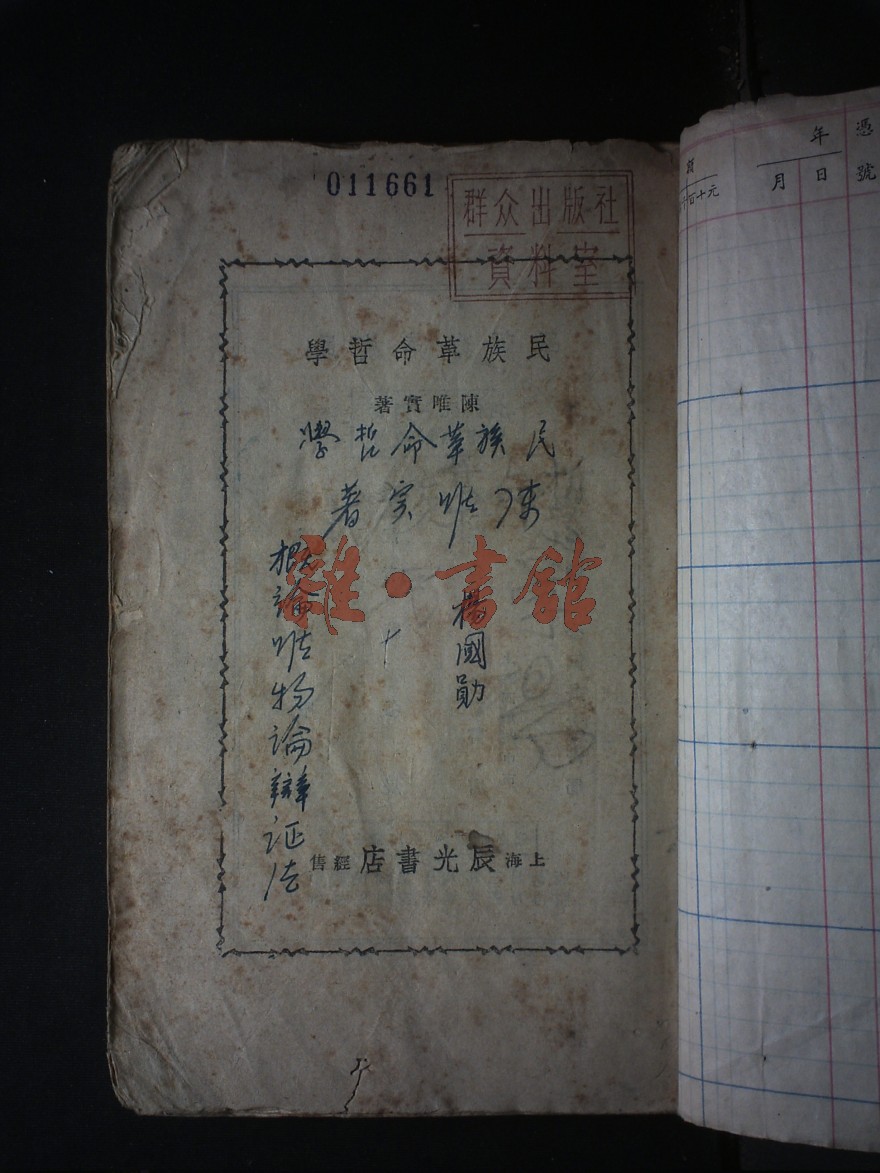 011661
群众出版社
資料室
民族革命哲學
陳唯實著
民族革命哲學
陈唯实著
雜·書館
楊國勛
十
概論唯物論辯证法
上海辰光書店經售
年
月 日
憑
號
元十百千